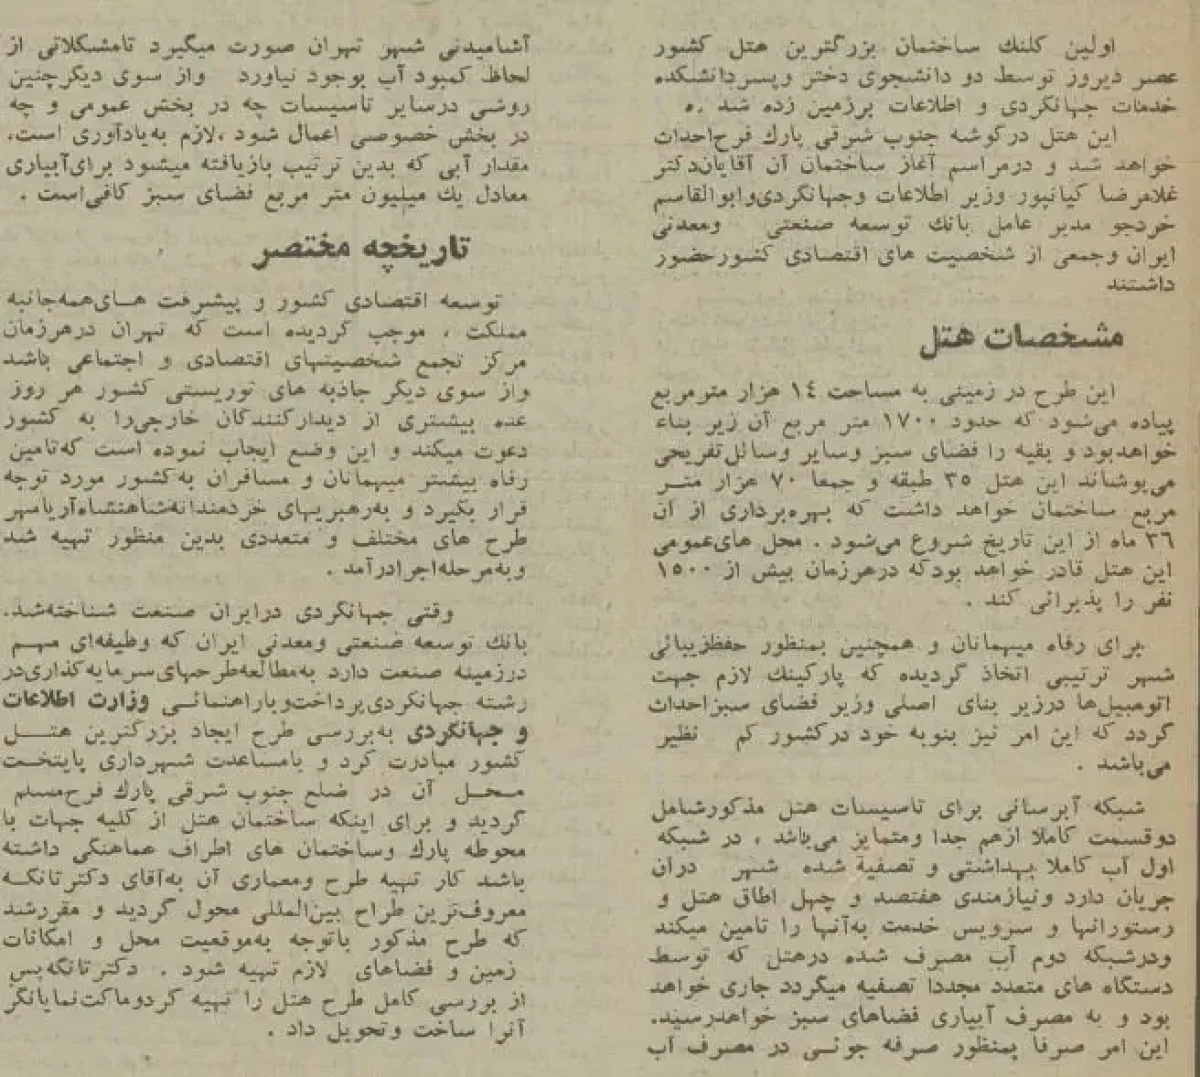 اولین کلنگ ساختمان بزرگترین هتل کشور
عصر دیروز توسط دو دانشجوی دختر وپسردانشکده
خدمات جهانگردی و اطلاعات برزمین زده شد .
این هتل درگوشه جنوب شرقی پارک فرح‌احداث
خواهد شد و درمراسم آغاز ساختمان آن آقایان‌دکتر
غلامرضا کیانپور وزیر اطلاعات وجهانگردی‌وابوالقاسم
خردجو مدیر عامل بانک توسعه صنعتی ومعدنی
ایران وجمعی از شخصیت های اقتصادی کشورحضور
داشتند
مشخصات هتل
این طرح در زمینی به مساحت ۱۴ هزار مترمربع
پیاده می‌شود که حدود ۱۷۰۰ متر مربع آن زیر بناء
خواهدبود و بقیه را فضای سبز وسایر وسائل‌تفریحی
می‌پوشاند این هتل ۳۵ طبقه و جمعا ۷۰ هزار متر
مربع ساختمان خواهد داشت که بهره‌برداری از آن
۳۶ ماه از این تاریخ شروع می‌شود . محل های‌عمومی
این هتل قادر خواهد بودکه درهرزمان بیش از ۱۵۰۰
نفر را پذیرائی کند .
برای رفاه میهمانان و همچنین بمنظور حفظ‌زیبائی
شهر ترتیبی اتخاذ گردیده که پارکینگ لازم جهت
اتومبیل‌ها درزیر بنای اصلی وزیر فضای سبزاحداث
گردد که این امر نیز بنوبه خود درکشور کم نظیر
می‌باشد .
شبکه آبرسانی برای تاسیسات هتل مذکورشامل
دوقسمت کاملا ازهم جدا ومتمایز می‌باشد ، در شبکه
اول آب کاملا بهداشتی و تصفیه شده شهر درآن
جریان دارد ونیازمندی هفتصد و چهل اطاق هتل و
رستورانها و سرویس خدمت به‌آنها را تامین میکند
ودرشبکه دوم آب مصرف شده درهتل که توسط
دستگاه های متعدد مجددا تصفیه میگردد جاری خواهد
بود و به مصرف آبیاری فضاهای سبز خواهدرسید.
این امر صرفا بمنظور صرفه جوئی در مصرف آب
آشامیدنی شهر تهران صورت میگیرد تامشکلاتی از
لحاظ کمبود آب بوجود نیاورد واز سوی دیگرچنین
روشی درسایر تاسیسات چه در بخش عمومی و چه
در بخش خصوصی اعمال شود ،لازم به‌یادآوری است،
مقدار آبی که بدین ترتیب بازیافته میشود برای‌آبیاری
معادل یک میلیون متر مربع فضای سبز کافی‌است .
تاریخچه مختصر
توسعه اقتصادی کشور و پیشرفت های‌همه‌جانبه
مملکت ، موجب گردیده است که تهران درهرزمان
مرکز تجمع شخصیتهای اقتصادی و اجتماعی باشد
واز سوی دیگر جاذبه های توریستی کشور هر روز
عده بیشتری از دیدارکنندگان خارجی‌را به کشور
دعوت میکند و این وضع ایجاب نموده است که‌تامین
رفاه بیشتر میهمانان و مسافران به‌کشور مورد توجه
قرار بگیرد و به‌رهبریهای خردمندانه‌شاهنشاه‌آریامهر
طرح های مختلف و متعددی بدین منظور تهیه شد
وبه‌مرحله‌اجرادرآمد .
وقتی جهانگردی درایران صنعت شناخته‌شد.
بانک توسعه صنعتی ومعدنی ایران که وظیفه‌ای مهم
درزمینه صنعت دارد به‌مطالعه‌طرحهای‌سرمایه‌گذاری‌در
رشته جهانگردی‌پرداخت‌وباراهنمائی وزارت اطلاعات
و جهانگردی به‌بررسی طرح ایجاد بزرگترین هتل
کشور مبادرت کرد و بامساعدت شهرداری پایتخت
محل آن در ضلع جنوب شرقی پارک فرح‌مسلم
گردید و برای اینکه ساختمان هتل از کلیه جهات با
محوطه پارک وساختمان های اطراف هماهنگی داشته
باشد کار تهیه طرح ومعماری آن به‌آقای دکترتانگه
معروف‌ترین طراح بین‌المللی محول گردید و مقررشد
که طرح مذکور باتوجه به‌موقعیت محل و امکانات
زمین و فضاهای لازم تهیه شود . دکترتانگه‌پس
از بررسی کامل طرح هتل را تهیه کردوماکت‌نمایانگر
آنرا ساخت وتحویل داد .